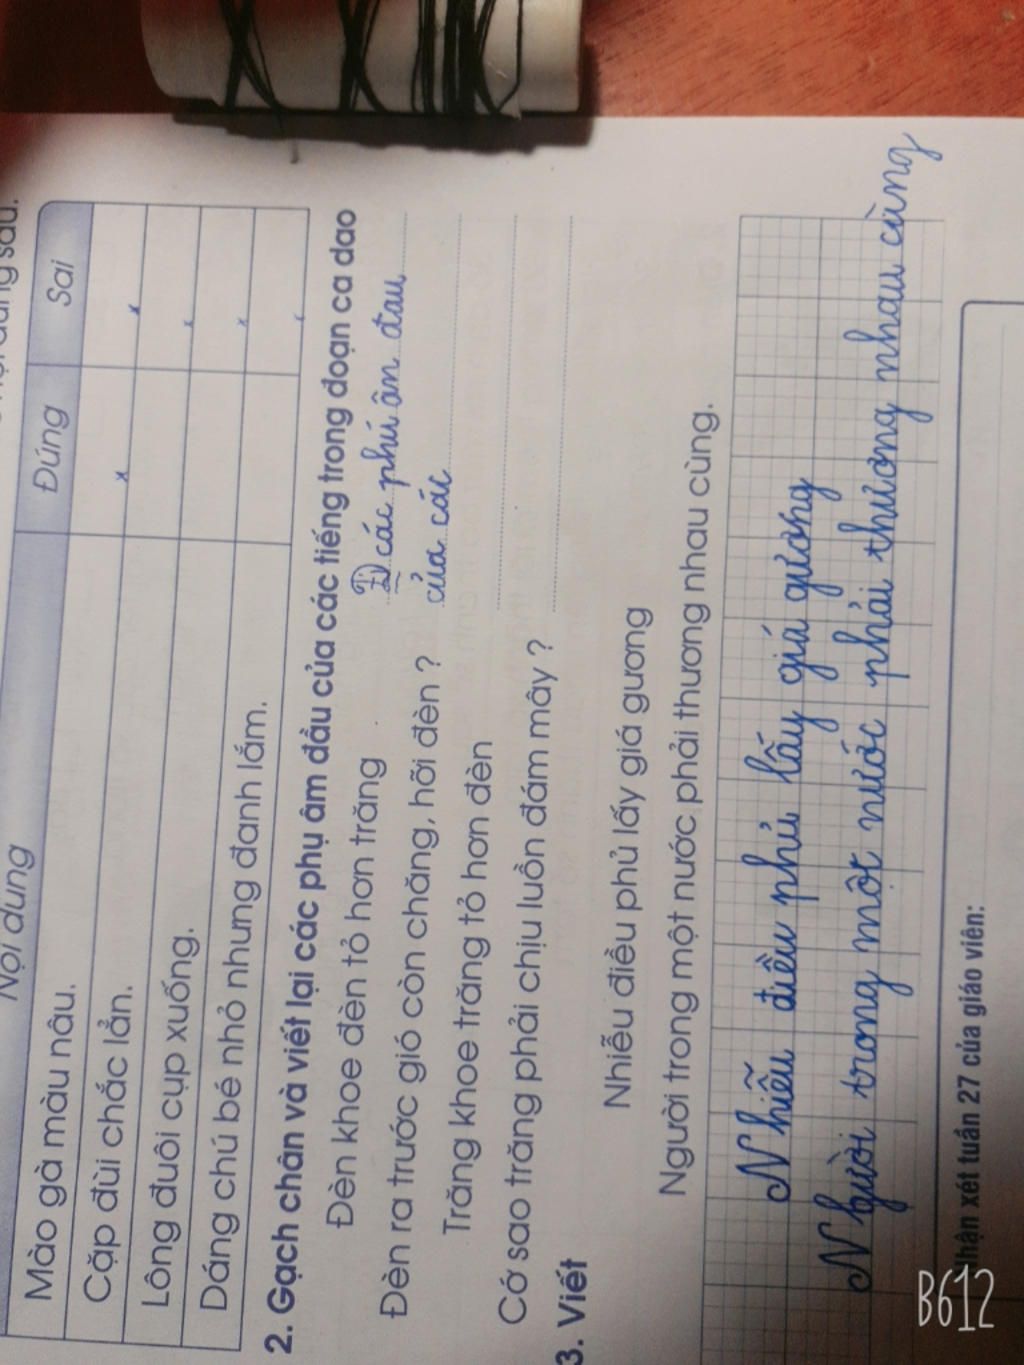 Nội dung Đúng Sai
Mào gà màu nâu. x
Cặp đùi chắc lẳn. x
Lông đuôi cụp xuống. x
Dáng chú bé nhỏ nhưng đanh lắm. x
2. Gạch chân và viết lại các phụ âm đầu của các tiếng trong đoạn ca dao
Đèn khoe đèn tỏ hơn trăng
Đèn ra trước gió còn chăng, hỡi đèn ?
Trăng khoe trăng tỏ hơn đèn
Cớ sao trăng phải chịu luồn đám mây ?
các phú ân đau
của các
3. Viết
Nhiễu điều phủ lấy giá gương
Người trong một nước phải thương nhau cùng.
Nhiễu điều phủ lấy giá gương
Người trong một nước phải thương nhau cùng
Nhận xét tuần 27 của giáo viên:
B612